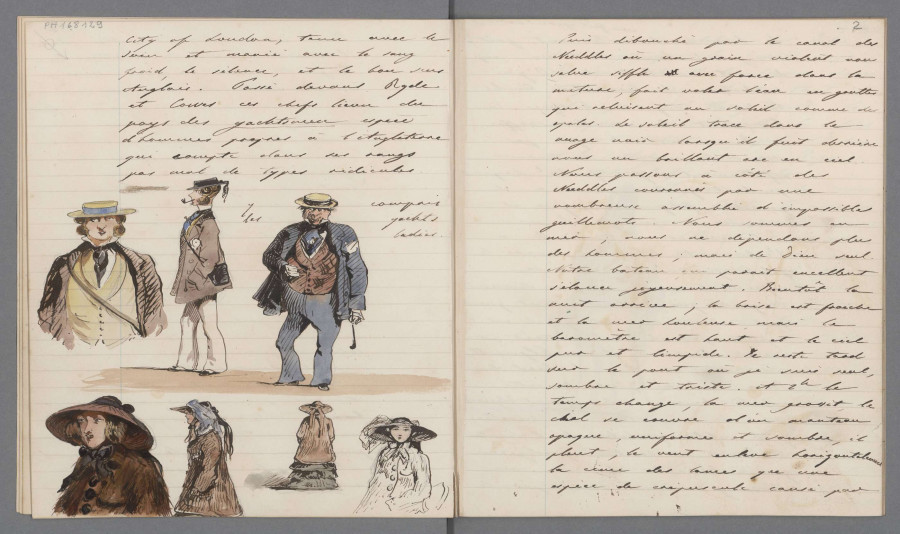 PH 148 129
City of London, tenu avec le
soin et manié avec le sang
froid le silence, et le bon sens
Anglais. Passé devant Ryde
et Cowes ces chefs lieux du
pays des yachtsmen espèce
d'hommes propres à l'Angleterre
qui compte dans ses rangs
pas mal de types ridicules
y compris
les yacht's
ladies.
2
Puis débouché par le canal des
Needdles où un grain violent nous
salue siffle avec force dans la
mâture, fait voler l'eau en gouttes
qui reluisent au soleil comme des
opales. Le soleil trace dans le
nuage noir lorsqu'il fuit derrière
nous un brillant arc en ciel.
Nous passons à côté des
Needdles couronnés par une
nombreuse assemblée d'impassibles
guillemots. Nous sommes en
mer, nous ne dépendons plus
des hommes ; mais de Dieu seul
Notre bateau en parait excellent
s'élance joyeusement. Bientôt la
nuit arrive, la brise est fraîche
et la mer houleuse mais le
baromètre est haut et le ciel
pur et limpide. Je reste tard
sur le pont où je suis seul,
sombre et triste. à 2h le
temps change, la mer grossit le
ciel se couvre d'un manteau
opaque, uniforme et sombre, il
pleut, le vent enlève horizontalement
la cime des lames que une
espèce de crépuscule causé par